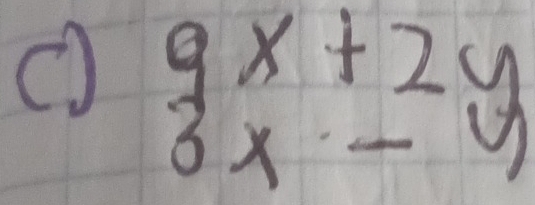 c) 9x + 2y
3x - y